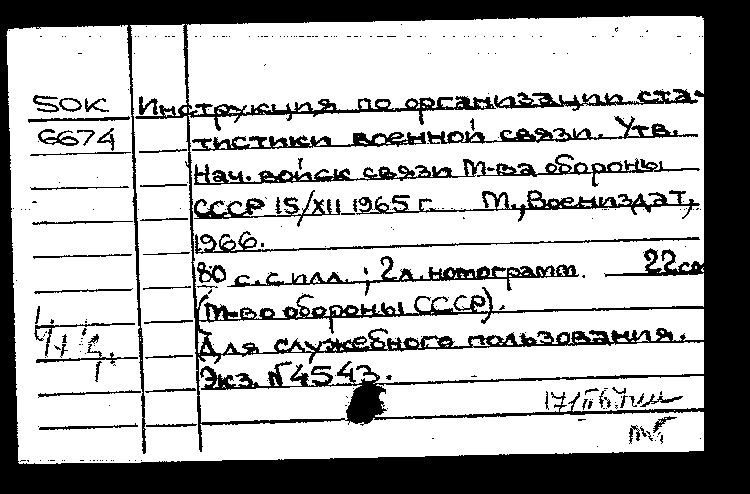 50К Инструкция по организации ста-
6674 тистики военной связи. Утв.
Нач. войск связи М-ва обороны
СССР 15/XII 1965 г. М., Воениздат,
1966.
80 с. с илл.; 2 л. номограмм. 22 см
(М-во обороны СССР).
Для служебного пользования.
Экз. №4543.
17/II 67